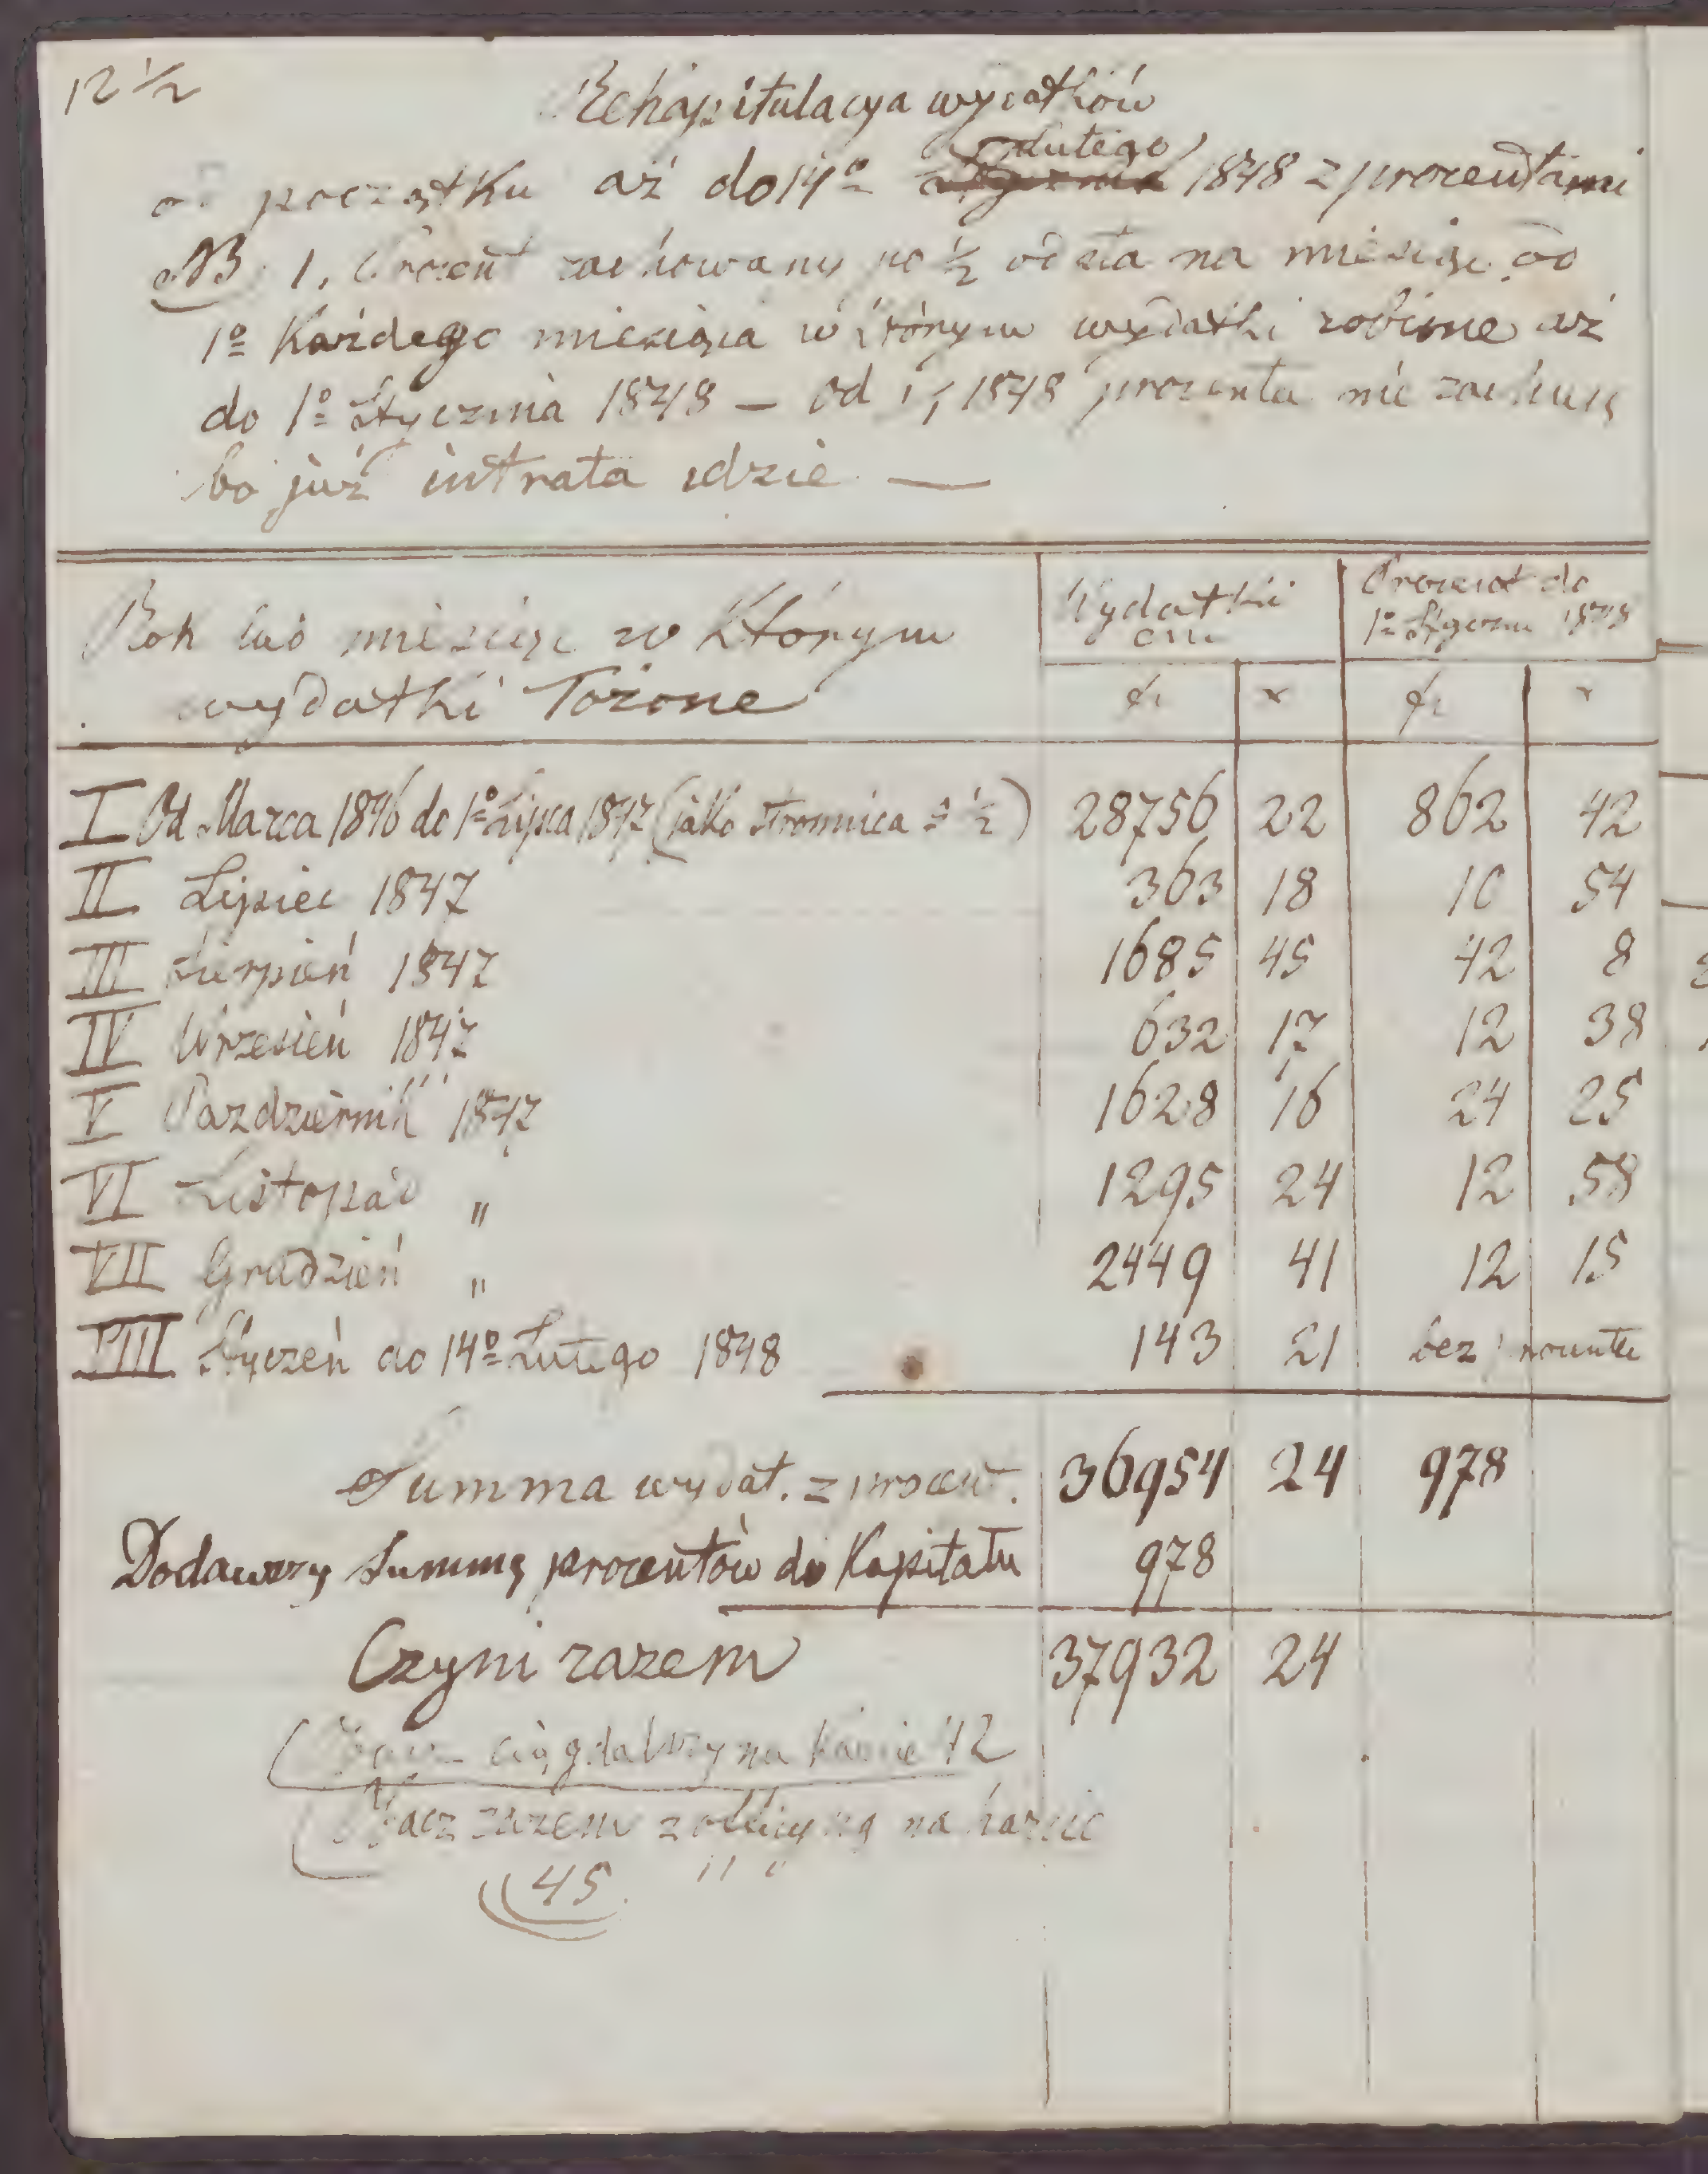 12 ½
Rekapitulacya wydatków
Lutego
od początku aż do 14º 1848 z procentami
NB. 1, Procent rachowany po ½ od sta na miesiąc od
1º Każdego miesiąca w którym wydatki robione aż
do 1º Stycznia 1848 — od 1/1 1848 procenta nie rachuję
bo już intrata idzie —
Rok lub miesiąc w Którym
wydatki łożone
Wydatki
Procent do
1º Styczn 1848
fr x fr x
I Od Marca 1846 do 1º Lipca 1847 (jako stronnica ½) 28756 22 862 42
II Lipiec 1847 363 18 10 54
III Sierpień 1847 1685 45 42 8
IV Wrzesień 1847 632 17 12 38
V Pazdziernik 1847 1628 16 24 25
VI Listopad " 1295 24 12 58
VII Grudzień " 2449 41 12 15
VIII Styczeń do 14º Lutego 1848 143 21 bez procentu
Summa wydat. z procent. 36954 24 978
Dodawszy Summę procentów do Kapitału 978
Czyni razem 37932 24
ciąg dalszy na karcie 42
Obacz razem z na karcie
45